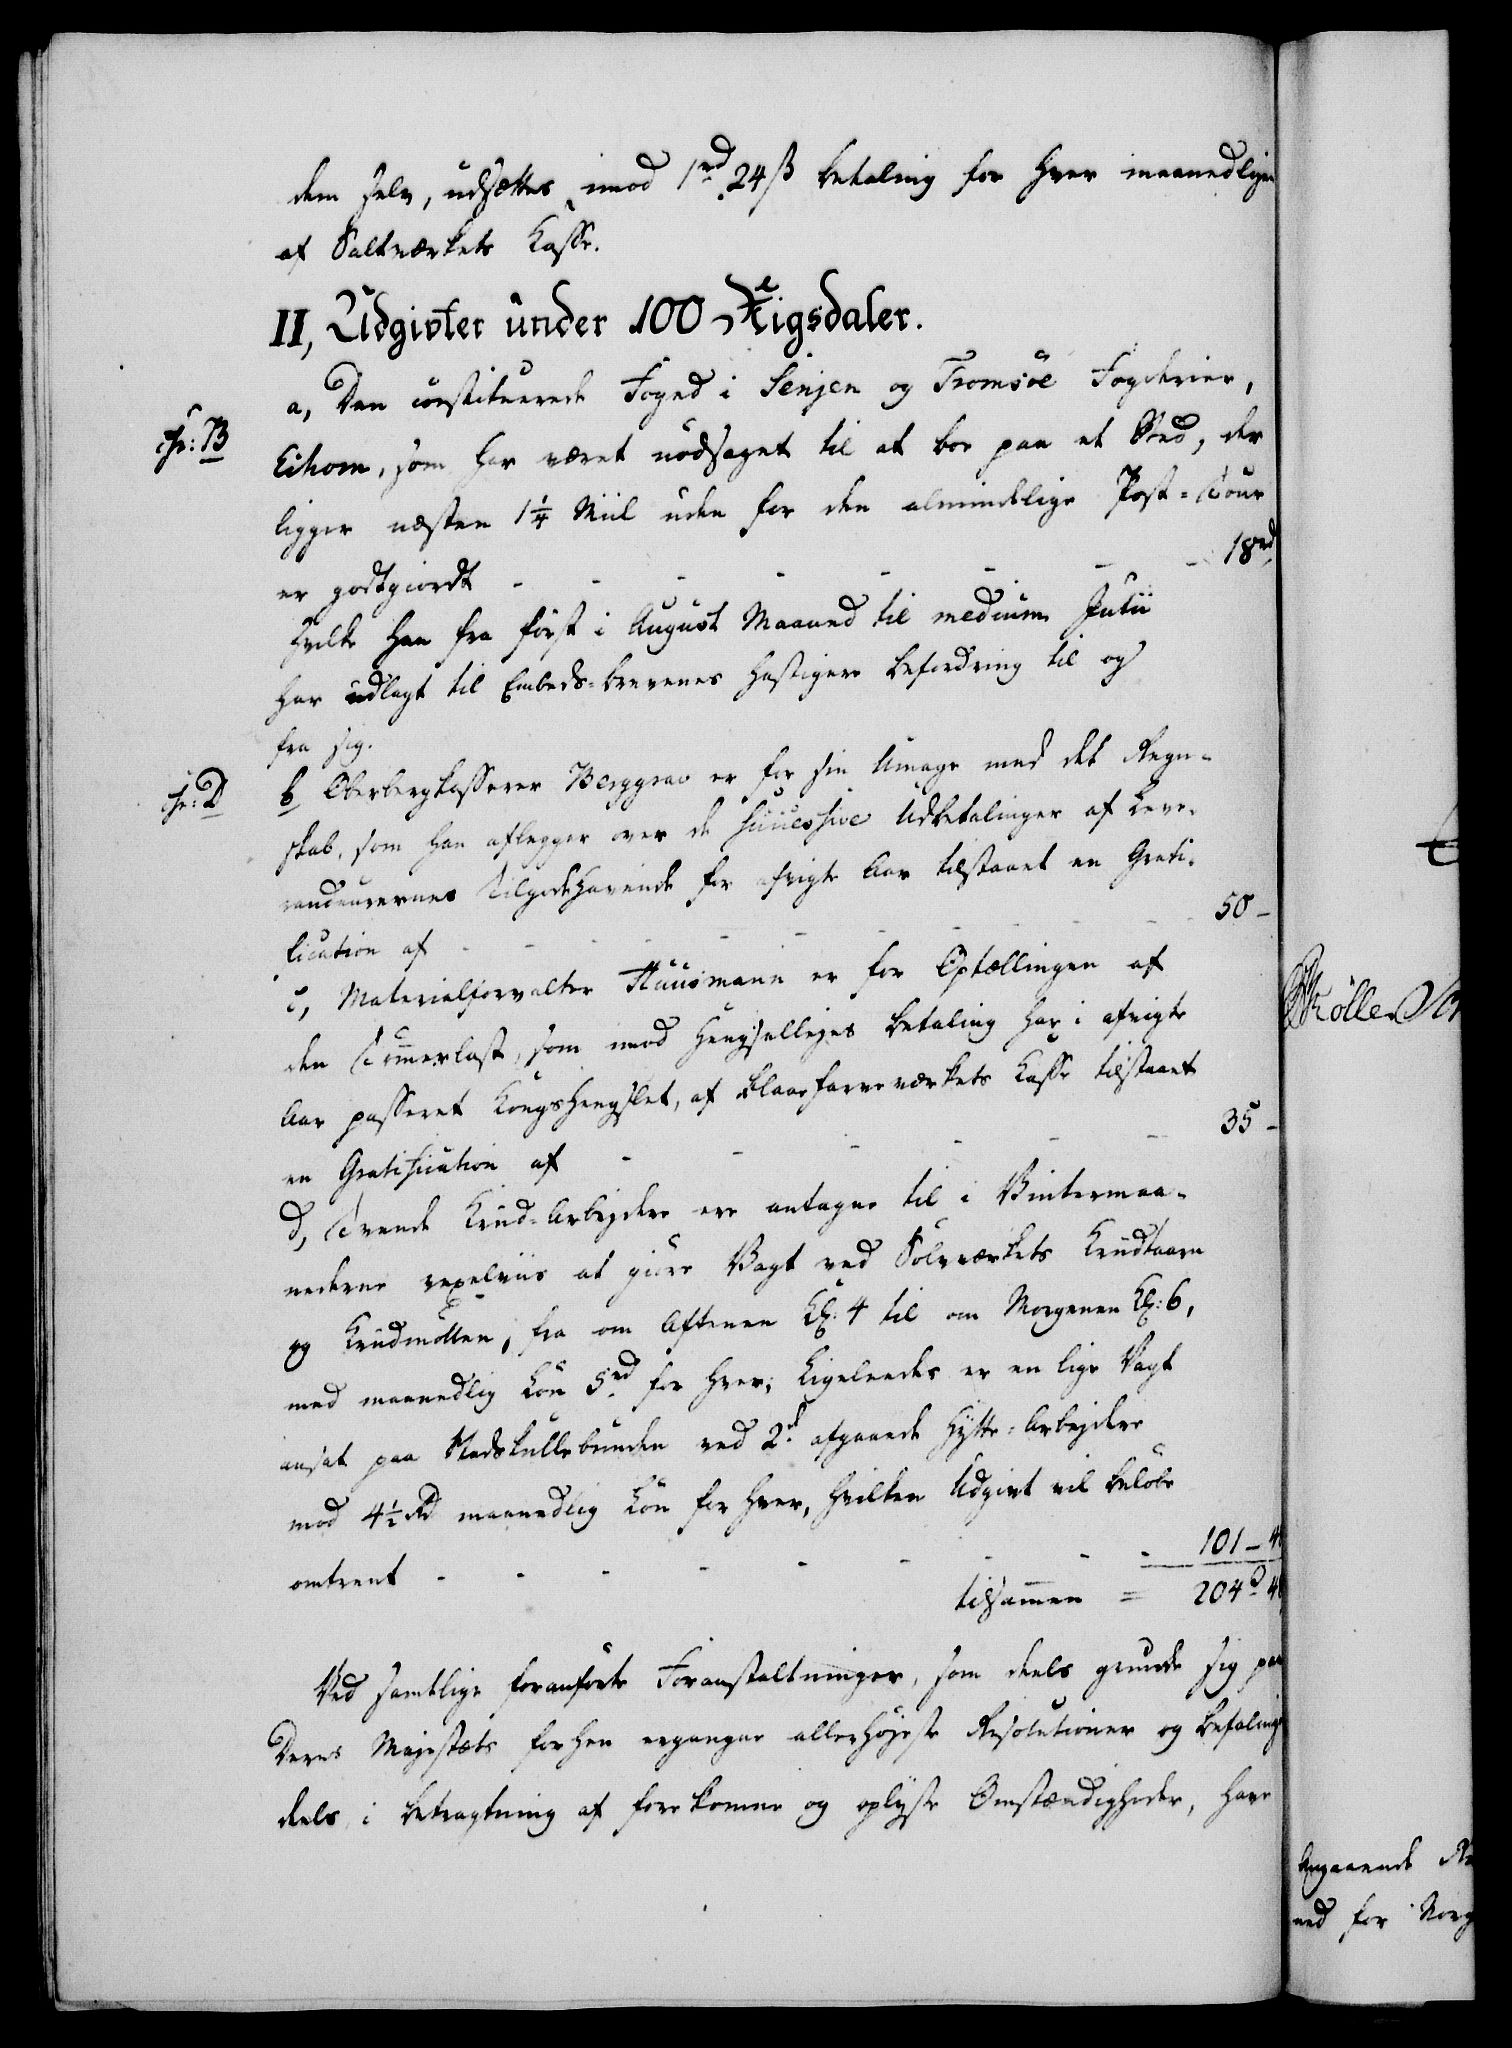 dem selv, udsættes imod 1 rd 24 ß betaling for hver maanedligen
af Saltværkets Casse.
II, Udgivter under 100 Rigsdaler.
a, Den constituerede Foged i Senjen og Tromsöe Fogderier,
cfr: B
Eihom, som har været nödsaget til at boe paa et Sted, der
ligger næsten 1 1/4 Miil uden for den almindelige Post-Tour
er godtgiordt - - - - - - - - 18 rd
hvilke han fra först i August Maaned til medium Julii
har udlagt til Embeds-brevenes hastigere befordring til og
fra sig.
cfr: D
b Oberbergkasserer Berggrav er for sin Umage med det Regn-
skab, som han aflægger over de successive Udbetalinger af Leve-
randeurernes Tilgodehavende for afvigte Aar tilstaaet en Grati-
fication af - - - - - - - - 50 -
c, Materialforvalter Huusmann er for Optællingen af
den Tømmerlast, som imod Hengselleyes betaling har i afvigte
Aar passeret Kongshengslet, af blaafarveværkets Casse tilstaaet
en Gratification af - - - - - - 35 -
d, Tvende Krud-Arbejdere ere antagne til i Vintermaa-
nederne vexelviis at giöre Vagt ved Sölvværkets Krudtaarn
og Krudmöllen, fra om Aftenen Kl: 4 til om Morgenen Kl: 6,
med maanedlig Lön 5 rd for hver; Ligeleedes er en lige Vagt
ansat paa Kulle bunden ved 2de afgaaede Hytte-Arbejdere
mod 4 1/2 Rd maanedlig Lön for hver, hvilken Udgivt vil belöbe
omtrent - - - - - - - - 101 - 4
tilsammen = 204 d 4
Ved samtlige foranförte Foranstaltninger, som deels grunde sig paa
Deres Majestæts forhen ergangne allerhöjeste Resolutioner og befalinger
deels i betragtning af forekomne og oplyste Omstændigheder, have
Möller
Angaaende
ved for Norg